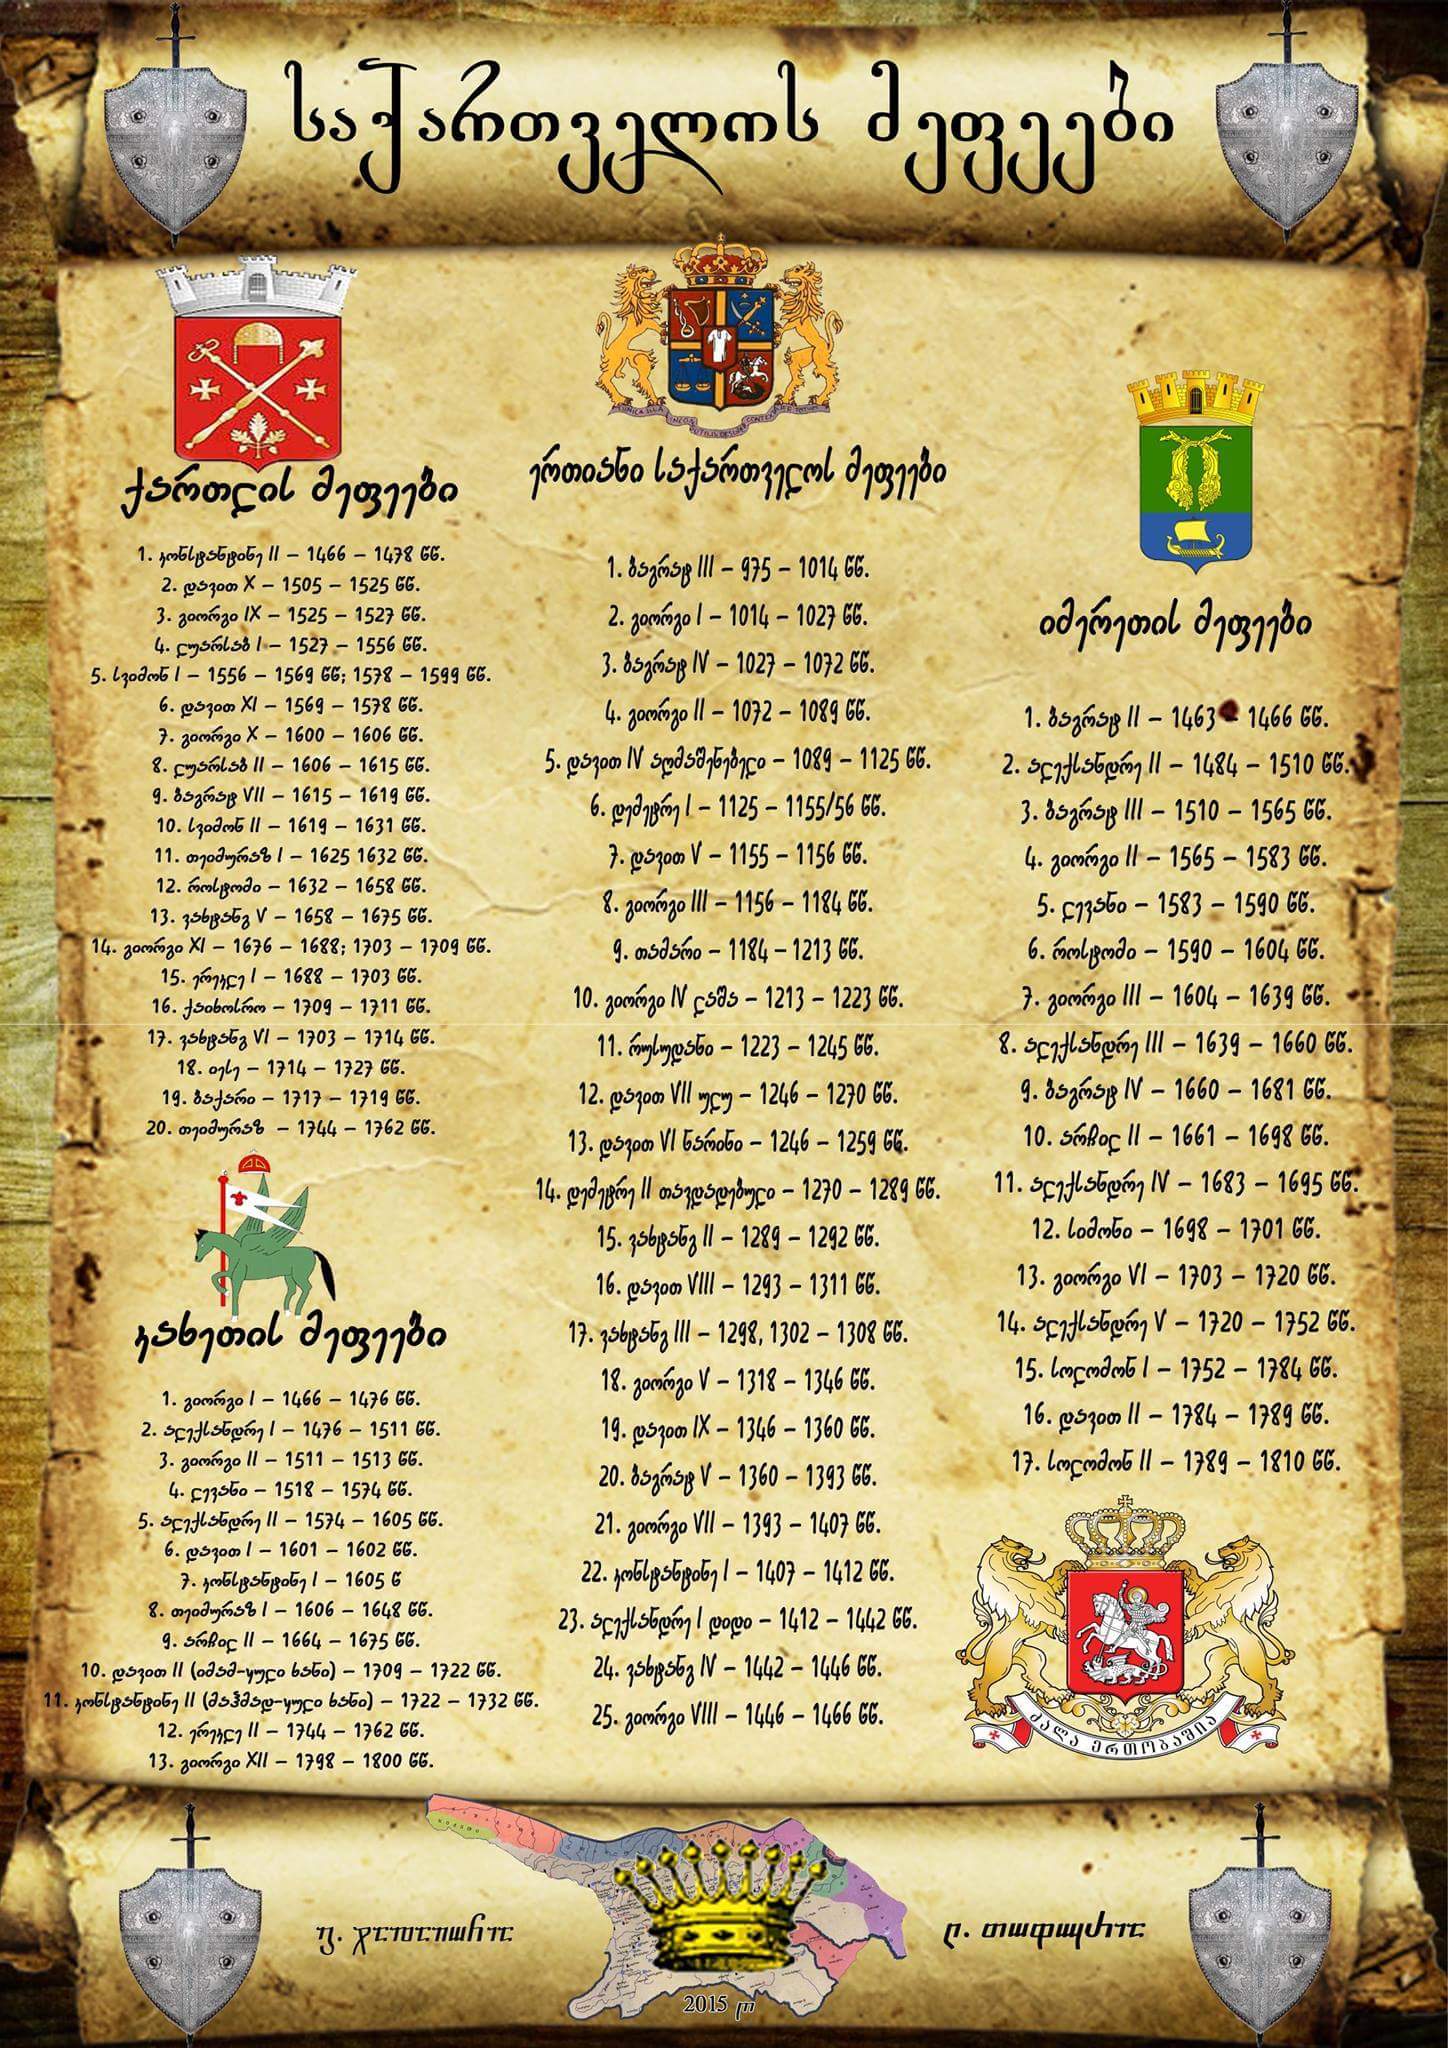 საქართველოს მეფეები
ქართლის მეფეები
1. კონსტანტინე II – 1466 – 1478 წწ.
2. დავით X – 1505 – 1525 წწ.
3. გიორგი IX – 1525 – 1527 წწ.
4. ლუარსაბ I – 1527 – 1556 წწ.
5. სვიმონ I – 1556 – 1569 წწ; 1578 – 1599 წწ.
6. დავით XI – 1569 – 1578 წწ.
7. გიორგი X – 1600 – 1606 წწ.
8. ლუარსაბ II – 1606 – 1615 წწ.
9. ბაგრატ VII – 1615 – 1619 წწ.
10. სვიმონ II – 1619 – 1631 წწ.
11. თეიმურაზ I – 1625 1632 წწ.
12. როსტომი – 1632 – 1658 წწ.
13. ვახტანგ V – 1658 – 1675 წწ.
14. გიორგი XI – 1676 – 1688; 1703 – 1709 წწ.
15. ერეკლე I – 1688 – 1703 წწ.
16. ქაიხოსრო – 1709 – 1711 წწ.
17. ვახტანგ VI – 1703 – 1714 წწ.
18. იესე – 1714 – 1727 წწ.
19. ბაქარი – 1717 – 1719 წწ.
20. თეიმურაზ – 1744 – 1762 წწ.
კახეთის მეფეები
1. გიორგი I – 1466 – 1476 წწ.
2. ალექსანდრე I – 1476 – 1511 წწ.
3. გიორგი II – 1511 – 1513 წწ.
4. ლევანი – 1518 – 1574 წწ.
5. ალექსანდრე II – 1574 – 1605 წწ.
6. დავით I – 1601 – 1602 წწ.
7. კონსტანტინე I – 1605 წ
8. თეიმურაზ I – 1606 – 1648 წწ.
9. არჩილ II – 1664 – 1675 წწ.
10. დავით II (იმამ-ყული ხანი) – 1709 – 1722 წწ.
11. კონსტანტინე II (მაჰმად-ყული ხანი) – 1722 – 1732 წწ.
12. ერეკლე II – 1744 – 1762 წწ.
13. გიორგი XII – 1798 – 1800 წწ.
ერთიანი საქართველოს მეფეები
1. ბაგრატ III – 975 – 1014 წწ.
2. გიორგი I – 1014 – 1027 წწ.
3. ბაგრატ IV – 1027 – 1072 წწ.
4. გიორგი II – 1072 – 1089 წწ.
5. დავით IV აღმაშენებელი – 1089 – 1125 წწ.
6. დემეტრე I – 1125 – 1155/56 წწ.
7. დავით V – 1155 – 1156 წწ.
8. გიორგი III – 1156 – 1184 წწ.
9. თამარი – 1184 – 1213 წწ.
10. გიორგი IV ლაშა – 1213 – 1223 წწ.
11. რუსუდანი – 1223 – 1245 წწ.
12. დავით VII ულუ – 1246 – 1270 წწ.
13. დავით VI ნარინი – 1246 – 1259 წწ.
14. დემეტრე II თავდადებული – 1270 – 1289 წწ.
15. ვახტანგ II – 1289 – 1292 წწ.
16. დავით VIII – 1293 – 1311 წწ.
17. ვახტანგ III – 1298, 1302 – 1308 წწ.
18. გიორგი V – 1318 – 1346 წწ.
19. დავით IX – 1346 – 1360 წწ.
20. ბაგრატ V – 1360 – 1393 წწ.
21. გიორგი VII – 1393 – 1407 წწ.
22. კონსტანტინე I – 1407 – 1412 წწ.
23. ალექსანდრე I დიდი – 1412 – 1442 წწ.
24. ვახტანგ IV – 1442 – 1446 წწ.
25. გიორგი VIII – 1446 – 1466 წწ.
იმერეთის მეფეები
1. ბაგრატ II – 1463 – 1466 წწ.
2. ალექსანდრე II – 1484 – 1510 წწ.
3. ბაგრატ III – 1510 – 1565 წწ.
4. გიორგი II – 1565 – 1583 წწ.
5. ლევანი – 1583 – 1590 წწ.
6. როსტომი – 1590 – 1604 წწ.
7. გიორგი III – 1604 – 1639 წწ.
8. ალექსანდრე III – 1639 – 1660 წწ.
9. ბაგრატ IV – 1660 – 1681 წწ.
10. არჩილ II – 1661 – 1698 წწ.
11. ალექსანდრე IV – 1683 – 1695 წწ.
12. სიმონი – 1698 – 1701 წწ.
13. გიორგი VI – 1703 – 1720 წწ.
14. ალექსანდრე V – 1720 – 1752 წწ.
15. სოლომონ I – 1752 – 1784 წწ.
16. დავით II – 1784 – 1789 წწ.
17. სოლომონ II – 1789 – 1810 წწ.
ძალა ერთობაშია
2015